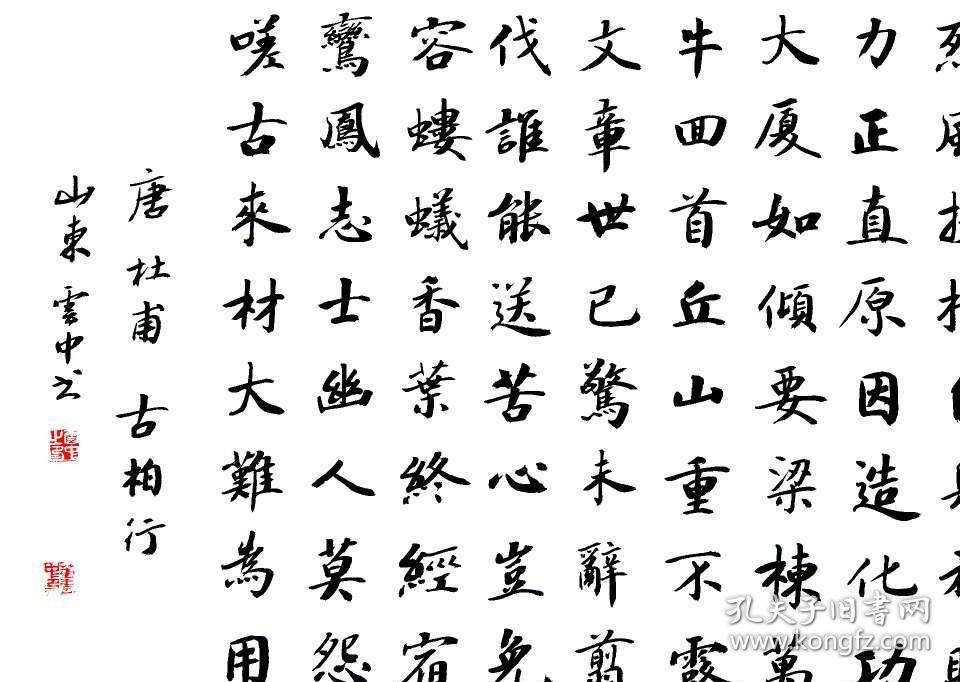 力正直原因造化功
大厦如傾要梁棟萬
牛回首丘山重不露
文章世已驚未辭翦
伐誰能送苦心豈免
容螻蟻香葉終經宿
鸞鳳志士幽人莫怨
嗟古來材大難為用
唐杜甫 古柏行
山東雲中书
孔夫子旧書网
www.kongfz.com